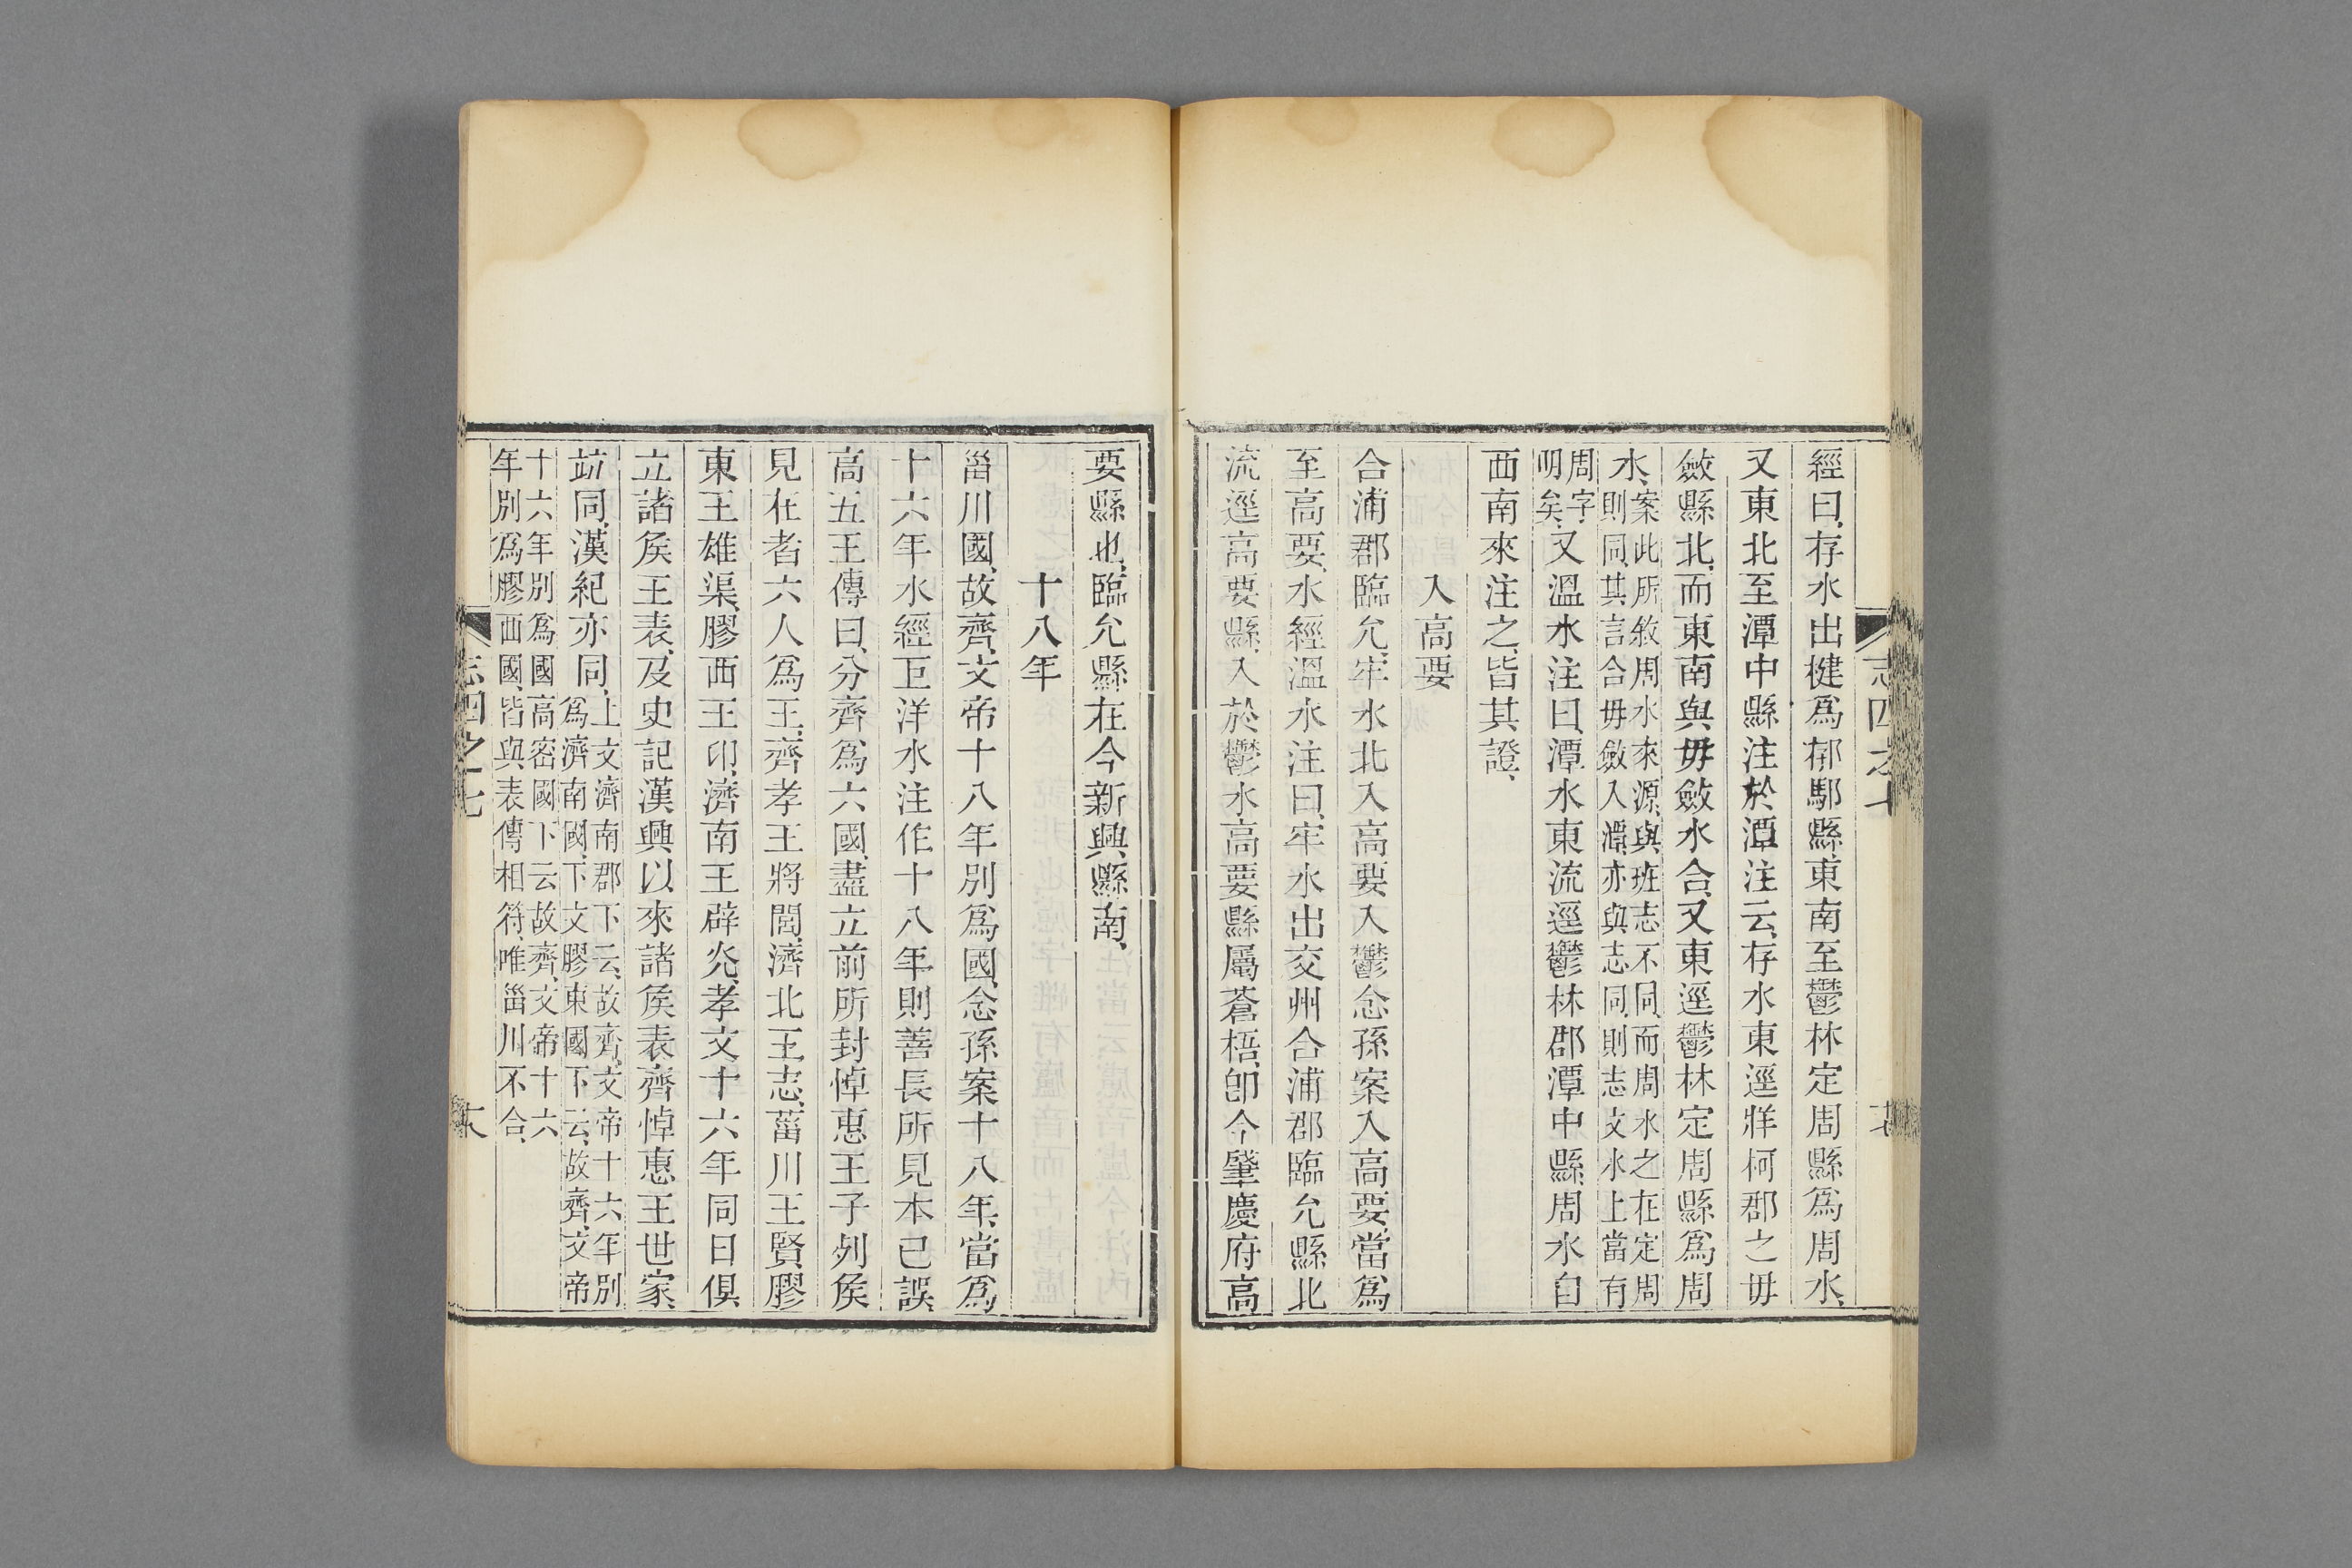 經曰、存水出楗爲郁鄢縣、東南至鬱林定周縣爲周水、
又東北至潭中縣注於潭、注云、存水東逕牂柯郡之毋
斂縣北、而東南與毋斂水合、又東逕鬱林定周縣爲周
水、案此所敘周水來源、與班志不同、而周水之在定周
則同、其言合毋斂入潭、亦與志同、則志文水上當有
周字
明矣、又溫水注曰、潭水東流逕鬱林郡潭中縣、周水自
西南來注之、皆其證、
入高要
合浦郡臨允、牢水北入高要入鬱、念孫案入高要、當爲
至高要、水經溫水注曰、牢水出交州合浦郡臨允縣北
流逕高要縣、入於鬱水、高要縣屬蒼梧、卽今肇慶府高
志四之七
要縣也、臨允縣在今新興縣南、
十八年
甾川國、故齊、文帝十八年別爲國、念孫案十八年、當爲
十六年、水經巨洋水注作十八年、則善長所見本已誤、
高五王傳曰、分齊爲六國、盡立前所封悼惠王子列矦
見在者六人爲王、齊孝王將閭、濟北王志、菑川王賢、膠
東王雄渠、膠西王卬、濟南王辟光、孝文十六年同日俱
立、諸矦王表、及史記漢興以來諸矦表、齊悼惠王世家、
竝同、漢紀亦同、上文濟南郡下云、故齊、文帝十六年別
爲濟南國、下文膠東國下云、故齊、文帝
十六年別爲國、高密國下云、故齊、文帝十六
年別爲膠西國、皆與表傳相符、唯甾川不合、
志四之七